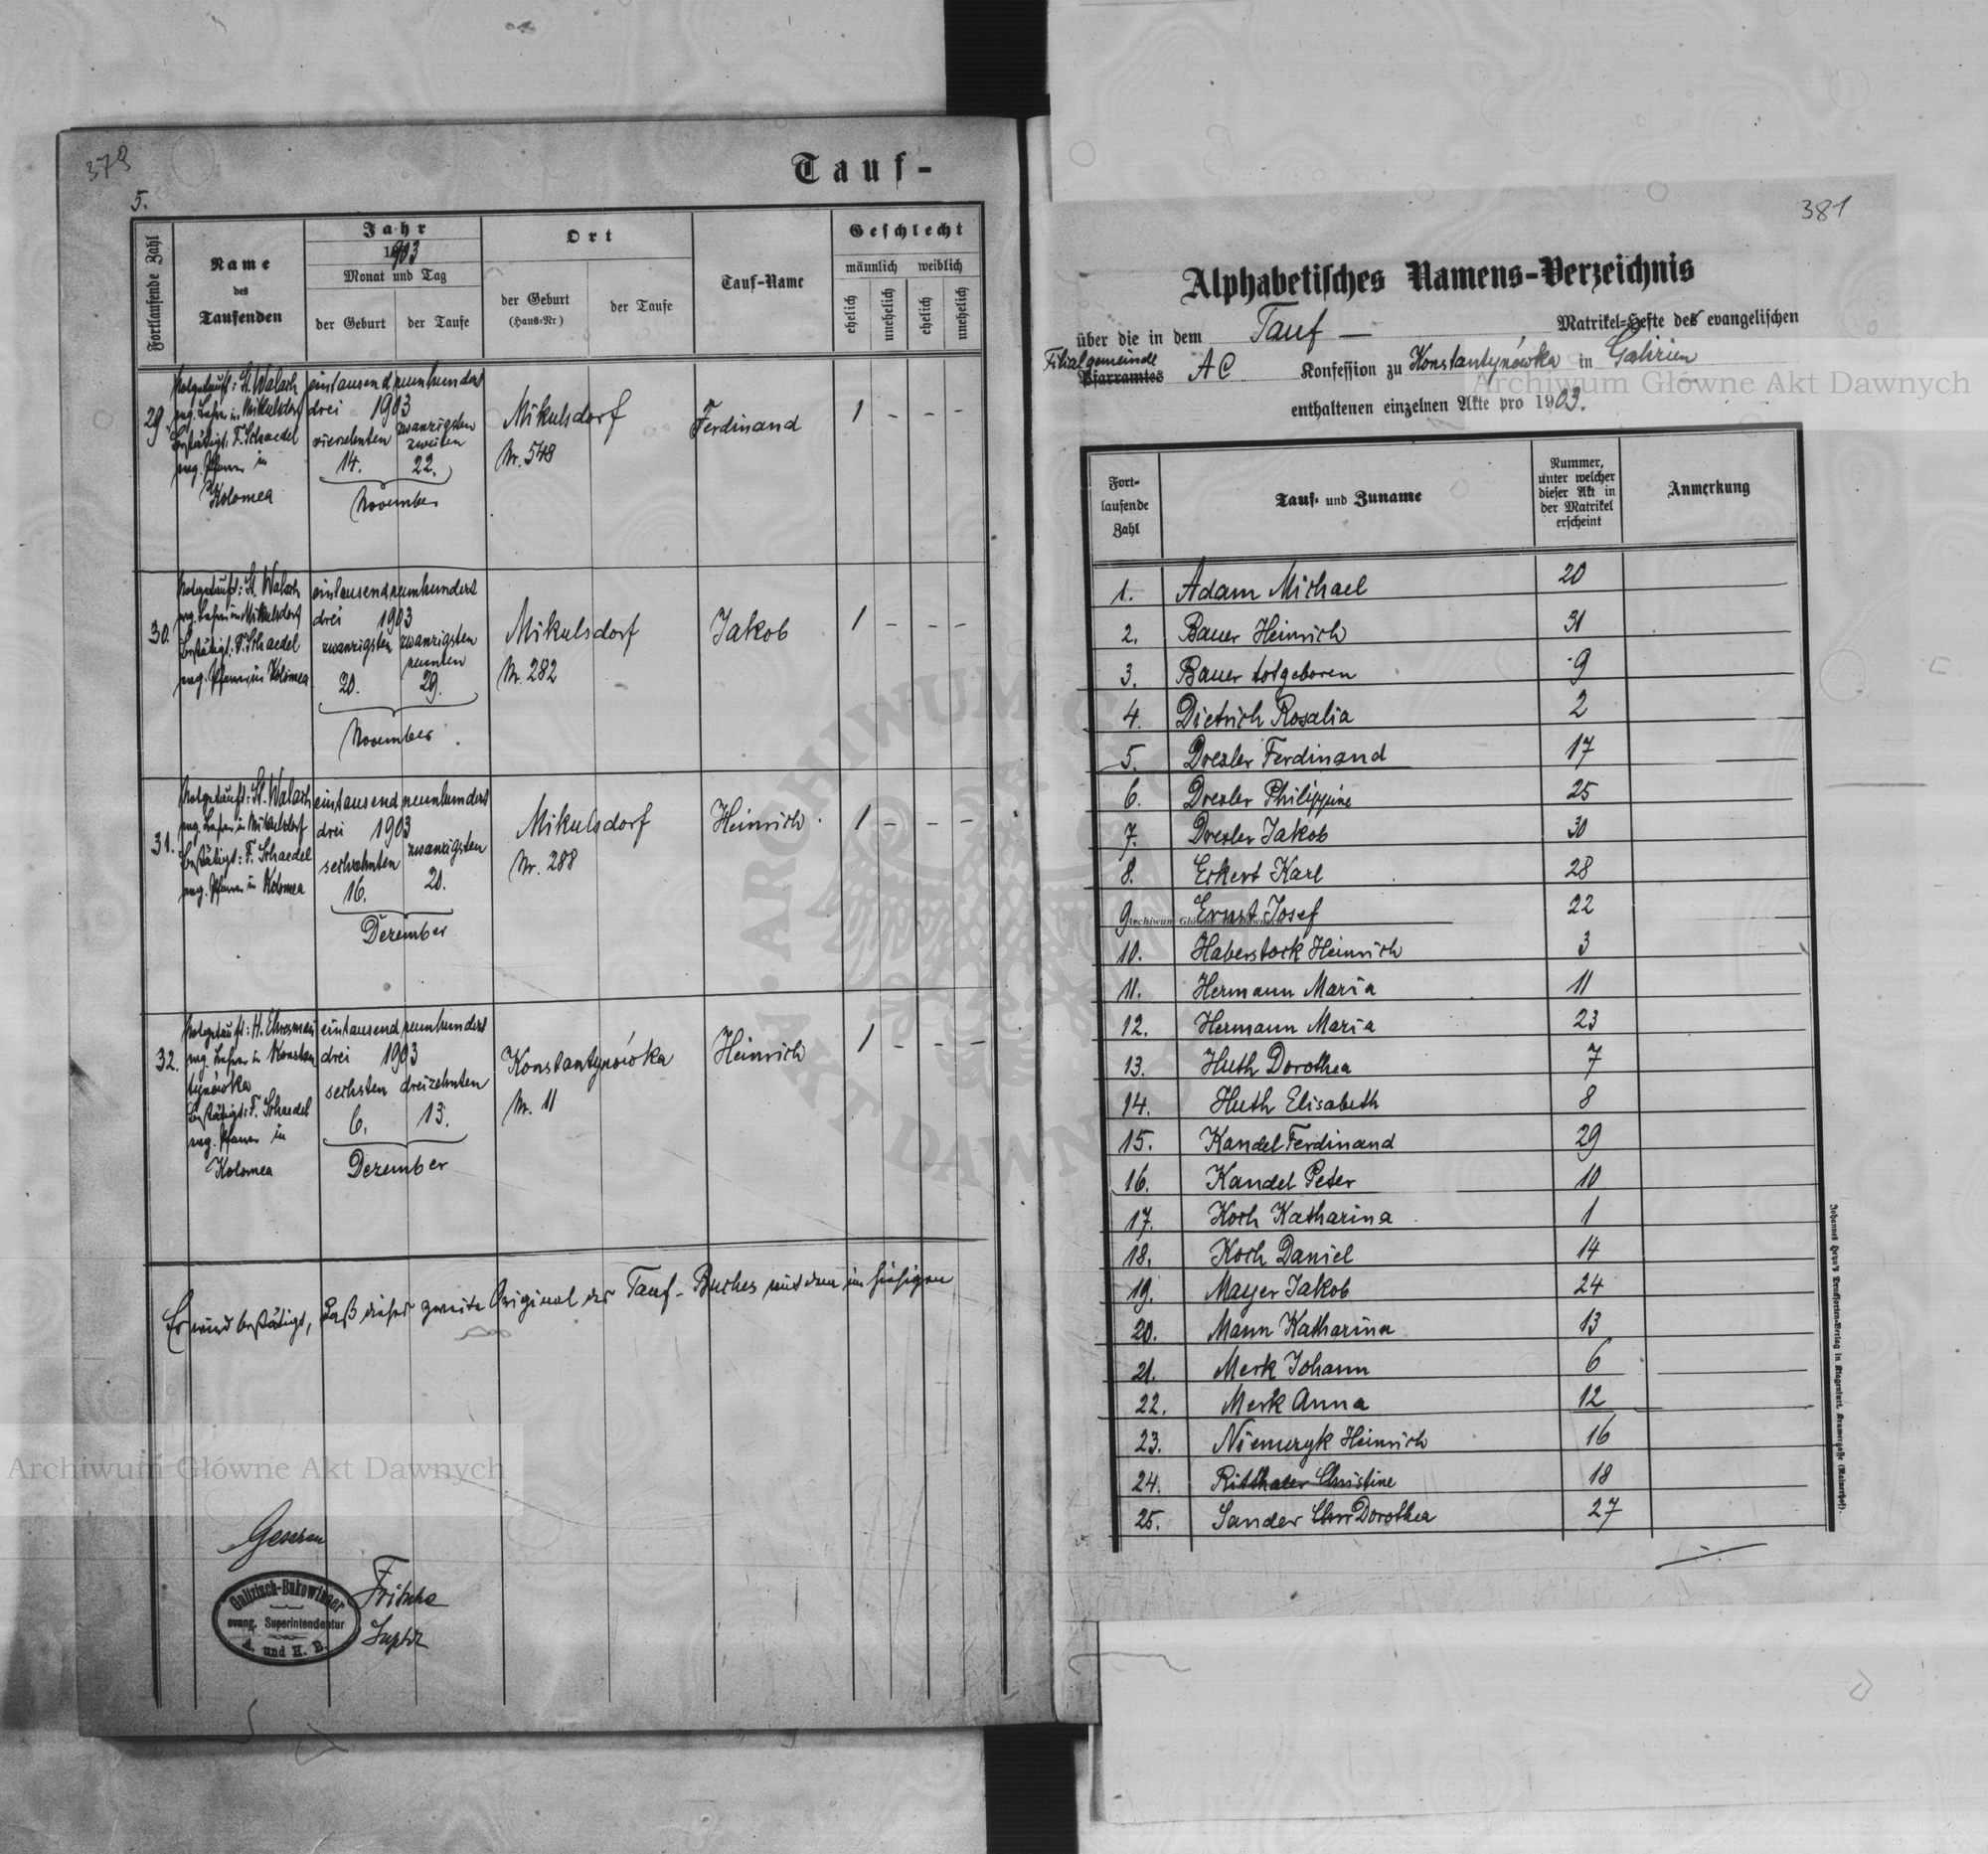 379
Tauf-
5.
Fortlaufende Zahl
Name
des
Taufenden
Jahr
1903
Monat und Tag
der Geburt
der Taufe
Ort
der Geburt
(Haus-Nr)
der Taufe
Tauf-Name
Geschlecht
männlich weiblich
ehelich
unehelich
ehelich
unehelich
29.
Notgetauft: St. Walach
evg. Lehrer in Mikulsdorf
Bestätigt: F. Schaedel
evg. Pfarrer in
Kolomea
eintausendneunhundert
drei 1903
vierzehnten zwanzigsten
zweiten
14. 22.
November
Mikulsdorf
Nr. 548
Ferdinand
1 - - -
30.
Notgetauft: St. Walach
evg. Lehrer in Mikulsdorf
Bestätigt: F. Schaedel
evg. Pfarrer in Kolomea
eintausendneunhundert
drei 1903
zwanzigsten zwanzigsten
neunten
20. 29.
November
Mikulsdorf
Nr. 282
Jakob
1 - - -
31.
Notgetauft: St. Walach
evg. Lehrer in Mikulsdorf
Bestätigt: F. Schaedel
evg. Pfarrer in Kolomea
eintausendneunhundert
drei 1903
sechzehnten zwanzigsten
16. 20.
Dezember
Mikulsdorf
Nr. 288
Heinrich
1 - - -
32.
Notgetauft: H. Ehresman
evg. Lehrer in Konstan
tynówka
Bestätigt: F. Schaedel
evg. Pfarrer in
Kolomea
eintausendneunhundert
drei 1903
sechsten dreizehnten
6. 13.
Dezember
Konstantynówka
Nr. 11
Heinrich
1 - - -
Es wird bestätigt, daß dieses zweite Original des Tauf-Buches mit dem im hiesigen
Gesehen
Galizisch-Bukowinaer
evang. Superintendentur
A. und H. B.
Fritsche
Suptdt
381
Alphabetisches Namens-Verzeichnis
über die in dem Tauf — Matrikel-Hefte des evangelischen
Filialgemeinde
Pfarramtes AC Konfession zu Konstantynówka in Galizien
enthaltenen einzelnen Akte pro 1903.
Fort-
laufende
Zahl
Tauf- und Zuname
Nummer,
unter welcher
dieser Akt in
der Matrikel
erscheint
Anmerkung
1. Adam Michael 20
2. Bauer Heinrich 31
3. Bauer totgeboren 9
4. Dietrich Rosalia 2
5. Drexler Ferdinand 17
6. Drexler Philippine 25
7. Drexler Jakob 30
8. Eckert Karl 28
9. Ernst Josef 22
10. Haberstock Heinrich 3
11. Hermann Maria 11
12. Hermann Maria 23
13. Huth Dorothea 7
14. Huth Elisabeth 8
15. Kandel Ferdinand 29
16. Kandel Peter 10
17. Koch Katharina 1
18. Koch Daniel 14
19. Mayer Jakob 24
20. Mann Katharina 13
21. Merk Johann 6
22. Merk Anna 12
23. Niemczyk Heinrich 16
24. Ritthaler Christine 18
25. Sander Chri Dorothea 27
Johannes Heyn's Drucksorten-Verlag in Klagenfurt, Kramergasse (Rainerhof).
Archiwum Główne Akt Dawnych
Archiwum Główne Akt Dawnych